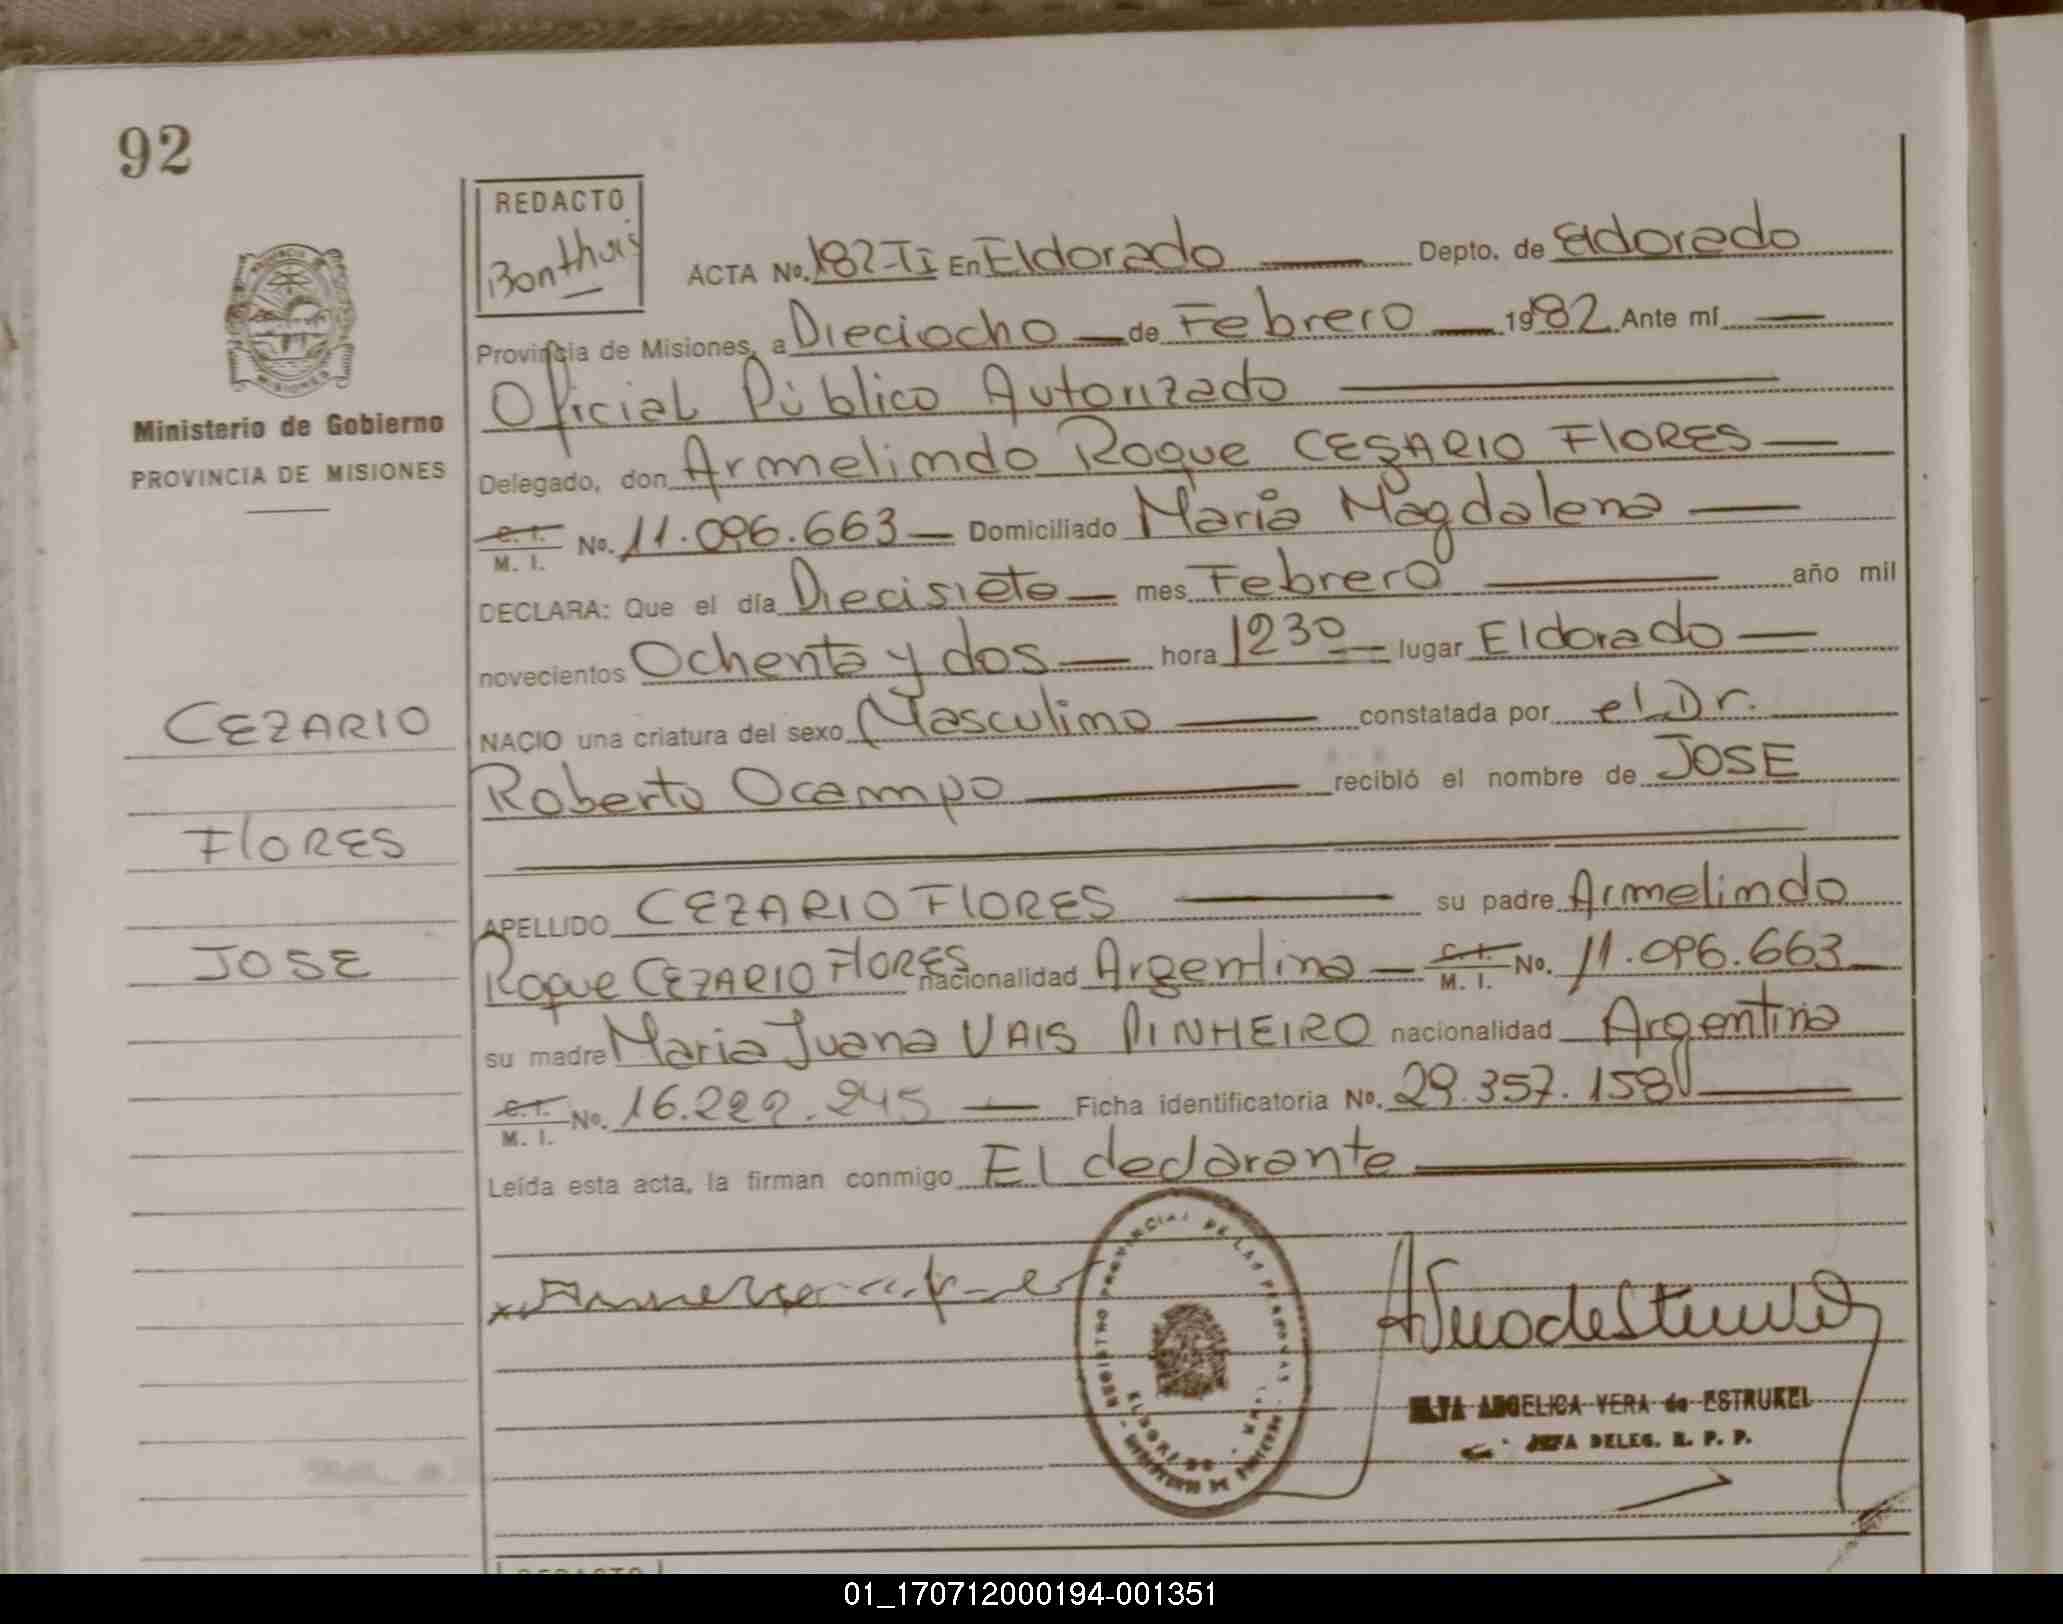 92
REDACTO
Bonthuis
ACTA No. 182-TI En Eldorado Depto. de Eldorado
Provincia de Misiones, a Dieciocho de Febrero 1982 Ante mí
Oficial Público Autorizado
Ministerio de Gobierno
PROVINCIA DE MISIONES
Delegado, don Armelindo Roque CEZARIO FLORES
C. I. M. I. No. 11.096.663 Domiciliado Maria Magdalena
DECLARA: Que el día Diecisiete mes Febrero año mil
novecientos Ochenta y dos hora 1230 lugar Eldorado
CEZARIO
NACIO una criatura del sexo Masculino constatada por el Dr.
Roberto Ocampo recibló el nombre de JOSE
FLORES
APELLIDO CEZARIO FLORES su padre Armelindo
JOSE
Roque CEZARIO FLORES nacionalidad Argentina C. I. M. I. No. 11.096.663
su madre Maria Juana VAIS PINHEIRO nacionalidad Argentina
C. I. M. I. No. 16.222.245 Ficha identificatoria No. 29.357.158
Leída esta acta, la firman conmigo El declarante
REGISTRO PROVINCIAL DE LAS PERSONAS
ELDORADO
ANGELICA VERA de ESTRUKEL
JEFA DELEG. R. P. P.
REDACTO
01_170712000194-001351